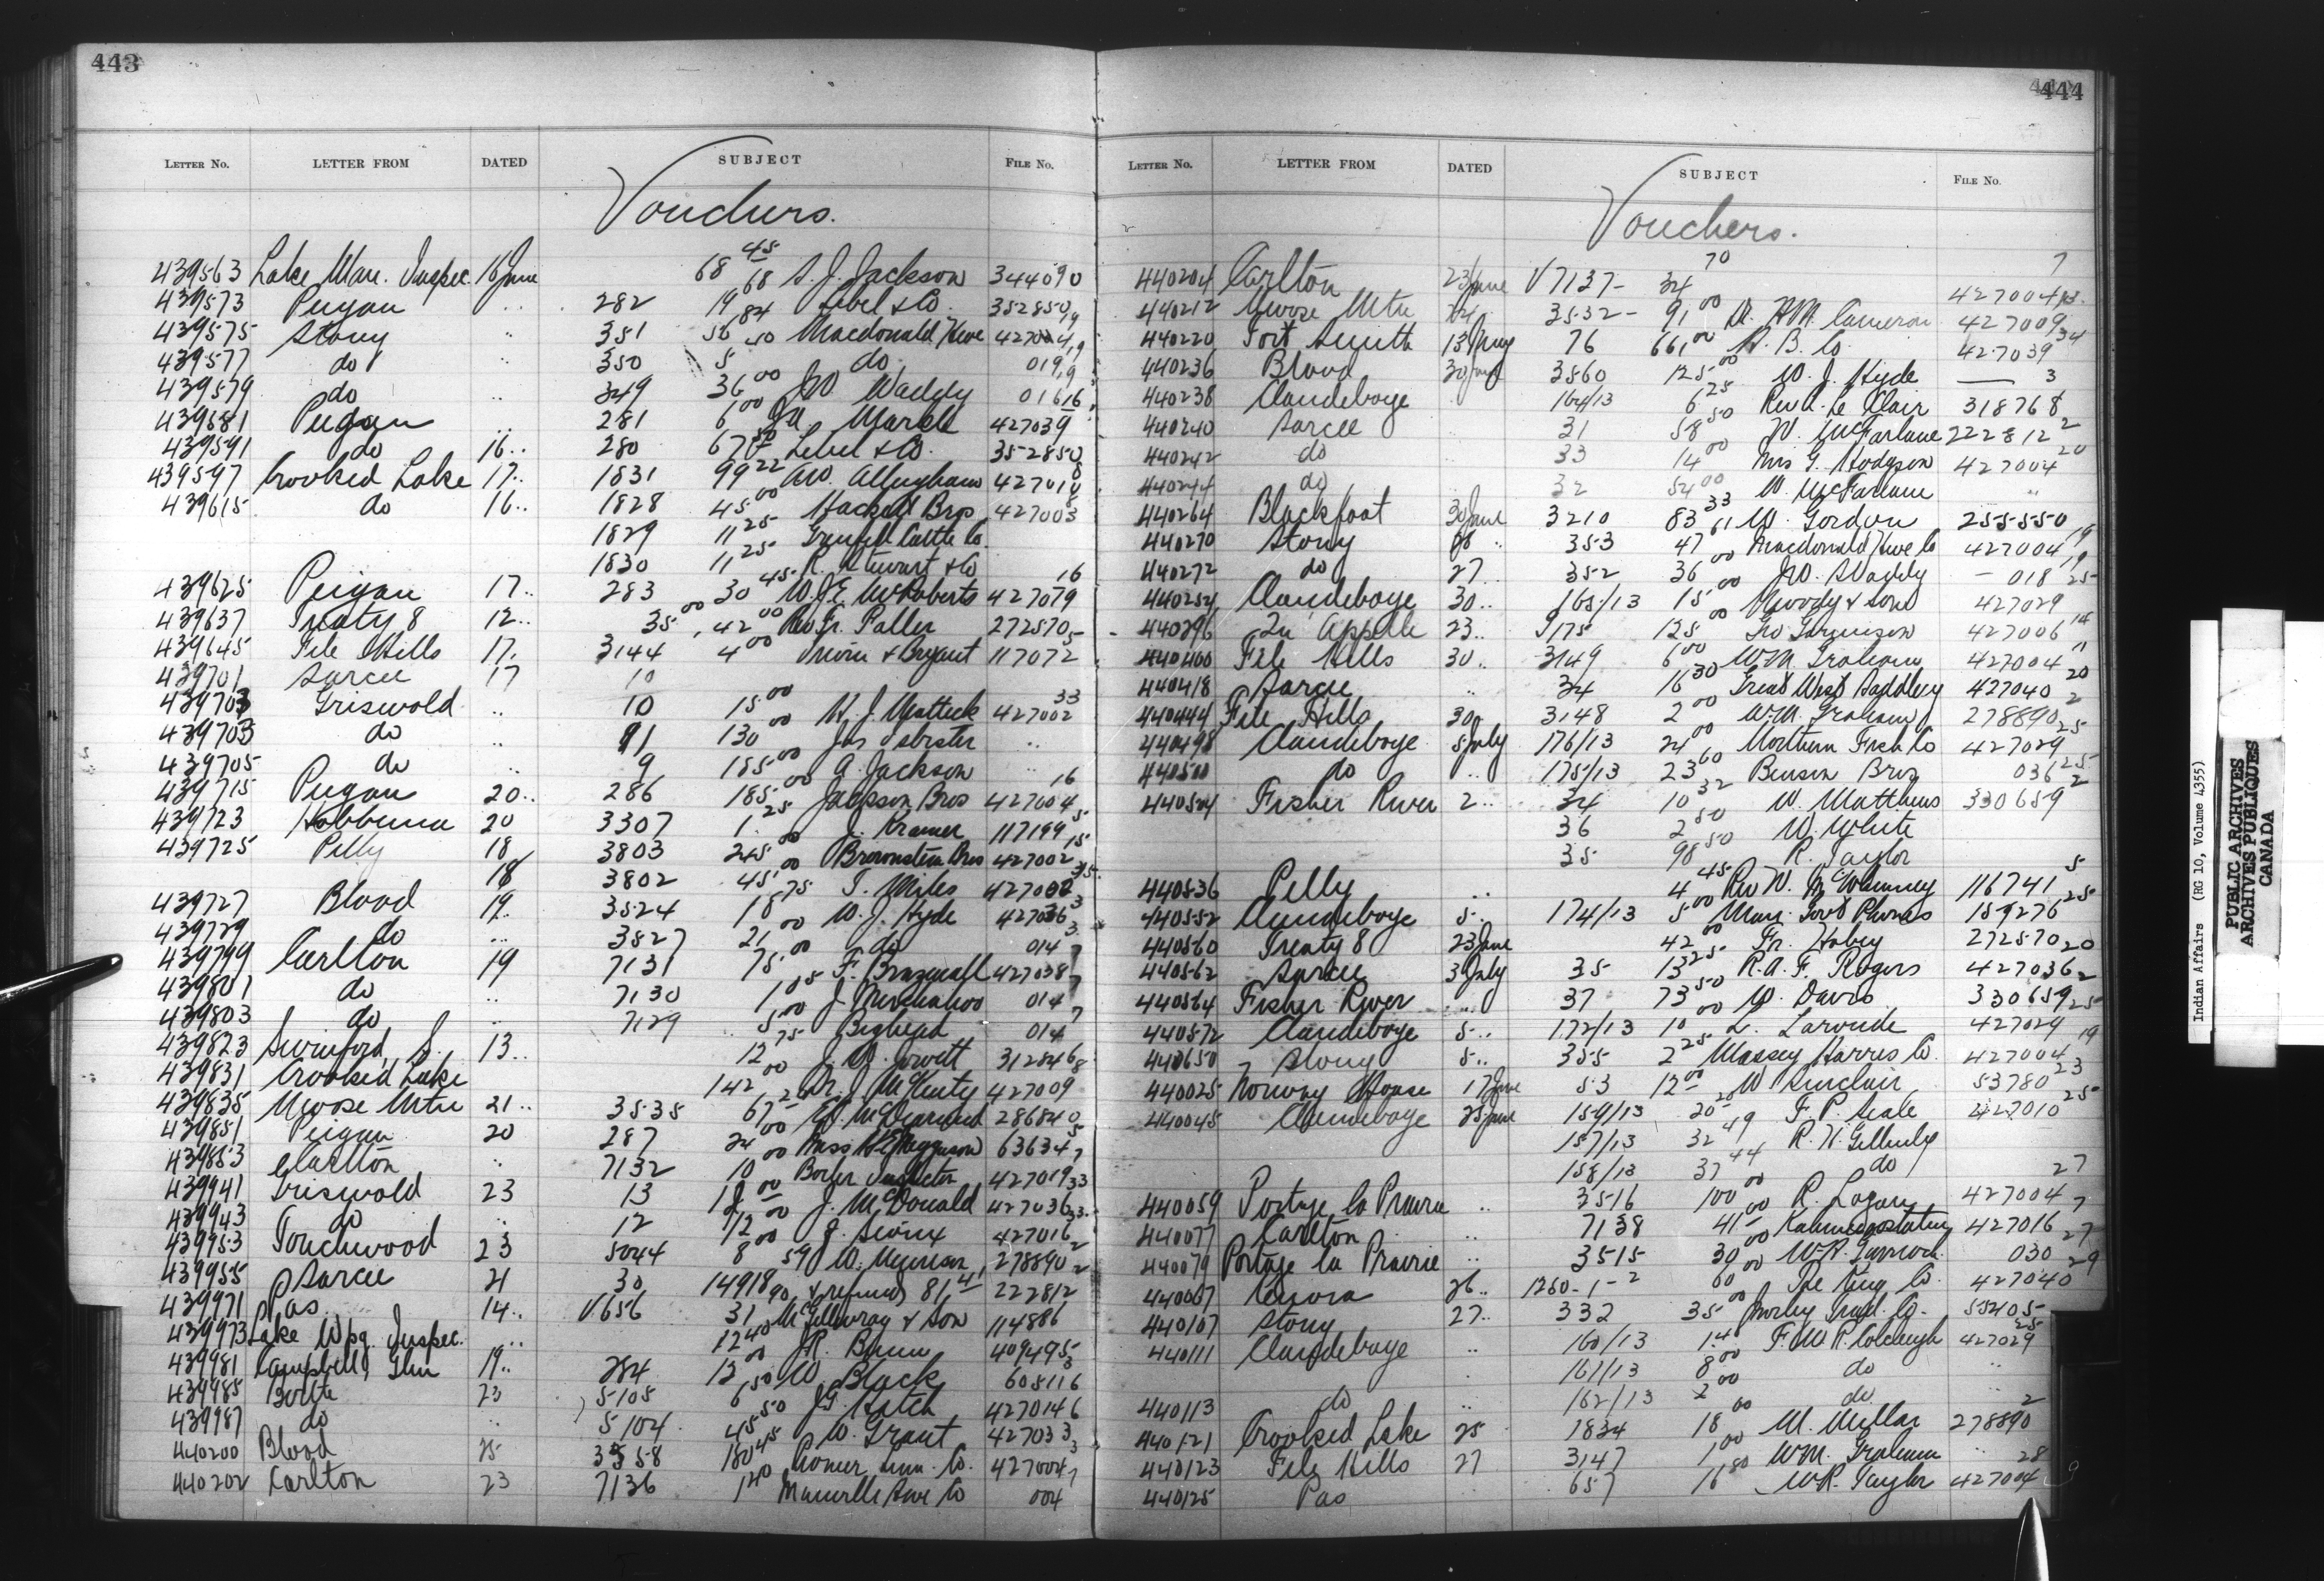 443
LETTER NO. LETTER FROM DATED SUBJECT FILE NO.
Vouchers.
439563 Lake Man. Inspec. 16 June 68 45 68 S. J. Jackson 344090
439573 Peigan .. 282 19 84 Lebel & Co. 352850
439575 Stony .. 351 56 50 Macdonald Hdwe 427004 19
439577 do .. 350 5 do 019 19
439579 do .. 349 36 00 JW. Waddy 016 16
439581 Peigan .. 281 6 00 427039
439591 do 16.. 280 67 50 Lebel & Co. 352850
439597 Crooked Lake 17.. 1831 99 22 AW. Allingham 427010 8
439615 do 16.. 1828 45 00 Hackett Bros 427003
1829 11 25 Grenfell Cattle Co.
1830 11 25 R. Stewart & Co
439625 Peigan 17.. 283 30 45 W.J.E. McRoberts 427079 16
439637 Treaty 8 12.. 35 00, 42 00 Rev. Fr. Paller 272570
439645 File Hills 17. 3144 4 00 & Bryant 117072 5
439701 Sarcee 17 10
439703 Griswold .. 10 15 00 H. J. Matteck 427002 33
439703 do .. 11 130 00 Jas ..
439705 do .. 9 185 00 A. Jackson ..
439715 Peigan 20.. 286 185 00 Jackson Bros 427004 16
439723 Hobbema 20 3307 1 25 J. Kramer 117199 5
439725 Pelly 18 3803 245 00 Brownstein Bros 427002 15
18 3802 45 00 T. Miles 427002
439727 Blood 19.. 3524 18 75 W. J. Hyde 427036 3
439729 do ... 3527 21 00 do 014 3
439799 Carlton 19 7131 75 00 F. Braswall 427038 7
439801 do .. 7130 1 05 J. 014 7
439803 do .. 7129 5 00 Bighead 014 7
439823 Swinford, S. 13.. 12 75 J. W. Jowett 312846
439831 Crooked Lake 142 00 Dr. J. McKenty 427009 8
439835 Moose Mtn 21.. 3535 67 2 286840
439851 Peigan 20 287 24 00 Miss 63634 5
439853 Carlton .. 7132 10 00 Boiler Inspector 427019 7
439941 Griswold 23 13 12 00 J. McDonald 427036 33
439943 do .. 12 12 00 J. Sioux 427016 33
439953 Touchwood 23 5044 8 59 W. 278890 2
439955 Sarcee 21 30 14918 90 & refund 81.41 222812 2
439971 Pas 14.. V656 31 McGillivray & Son 114886
439973 Lake Wpg. Inspec. ... 12 40 JR. Bunn 409495
439981 Campbell, Glen 19.. 284 13 00 W. Black 605116 3
439985 Birtle 23 5105 6 50 JG. Hatch 427014 6
439987 do .. 5104 45 50 W. Grant 427033
440200 Blood 25 3558 180 45 427004 3
440202 Carlton 23 7136 1 20 Manville Hwe Co 004 7
444
LETTER NO. LETTER FROM DATED SUBJECT FILE NO.
Vouchers.
440204 Carlton 23 June V7137- 34 70 427004 7
440212 Moose Mtn 24 3532- 91 00 Dr. HM. Cameron 427009
440220 Fort Smith 13 May 76 661 00 H. B. Co. 427039 34
440236 Blood 30 June 3560 125 00 W. J. Hyde — 3
440238 Clandeboye 164/13 6 25 Rev A. Le Clair 318768
440240 Sarcee 31 58 50 W. McFarlane 222812 2
440242 do 33 14 00 Mrs G. Hodgson 427004 20
440244 do 32 54 00 W. McFarlane ..
440264 Blackfoot 30 June 3210 83 33 W. Gordon 255550
440270 Stony 28 .. 353 47 61 Macdonald Hwe Co 427004 19
440272 do 27 352 36 00 JW. Waddy — 018 19
440254 Clandeboye 30.. 165/13 15 00 Moody & Sons 427029 25
440296 Qu'Appelle 23.. 5175 125 00 Geo 427006 14
440400 File Hills 30.. 3149 6 00 W.M. Graham 427004 11
440418 Sarcee .. 34 16 30 Great West Saddlery 427040 20
440444 File Hills 30 3148 2 00 W.M. Graham 278890 2
440498 Clandeboye 5 July 176/13 24 00 Northern Fish Co 427029 25
440500 do .. 175/13 23 60 Benson Bros 036 25
440524 Fisher River 2.. 34 10 32 W. Matthews 330659 2
36 2 50 W. White
35 98 50 R. Taylor
440536 Pelly .. 4 45 Rev W. McWhinney 116741 5
440552 Clandeboye 5.. 174/13 5 00 Man. Govt Phones 159276 25
440560 Treaty 8 23 June 42 00 Fr. Habey 272570
440562 Sarcee 3 July 35 13 25 R.A.F. Rogers 427036 20
440564 Fisher River ... 37 73 50 W. Davis 330659 2
440572 Clandeboye 5.. 172/13 10 00 L. Laronde 427029 25
440650 Stony 5.. 355 2 25 Massey Harris Co. 427004 19
440025 Norway House 17 June 53 12 00 W. Sinclair 53780 23
440045 Clandeboye 25 June 159/13 20 20 F. P. Seale 427010 25
157/13 32 49 R. H. Gellenly
158/13 37 44 do
440059 Portage la Prairie .. 3516 100 00 R. Logan 427004 27
440077 Carlton .. 7138 41 00 427016 7
440079 Portage la Prairie .. 3515 30 00 030 27
440087 Kenora 26.. 1260-1-2 60 00 The King Co. 427040 29
440107 Stony 27.. 332 35 00 Morley Trad. Co. 55205
440111 Clandeboye .. 160/13 1.40 F. W. R. Colcleugh 427029 25
161/13 8 00 do ..
440113 do .. 162/13 2 00 do ..
440121 Crooked Lake 25 1834 18 00 M. Millar 278890 2
440123 File Hills 27 3147 1 00 WM. Graham ..
440125 Pas .. 657 16 80 W.R. Taylor 427004 28
Indian Affairs (RG 10, Volume 4355)
PUBLIC ARCHIVES
ARCHIVES PUBLIQUES
CANADA